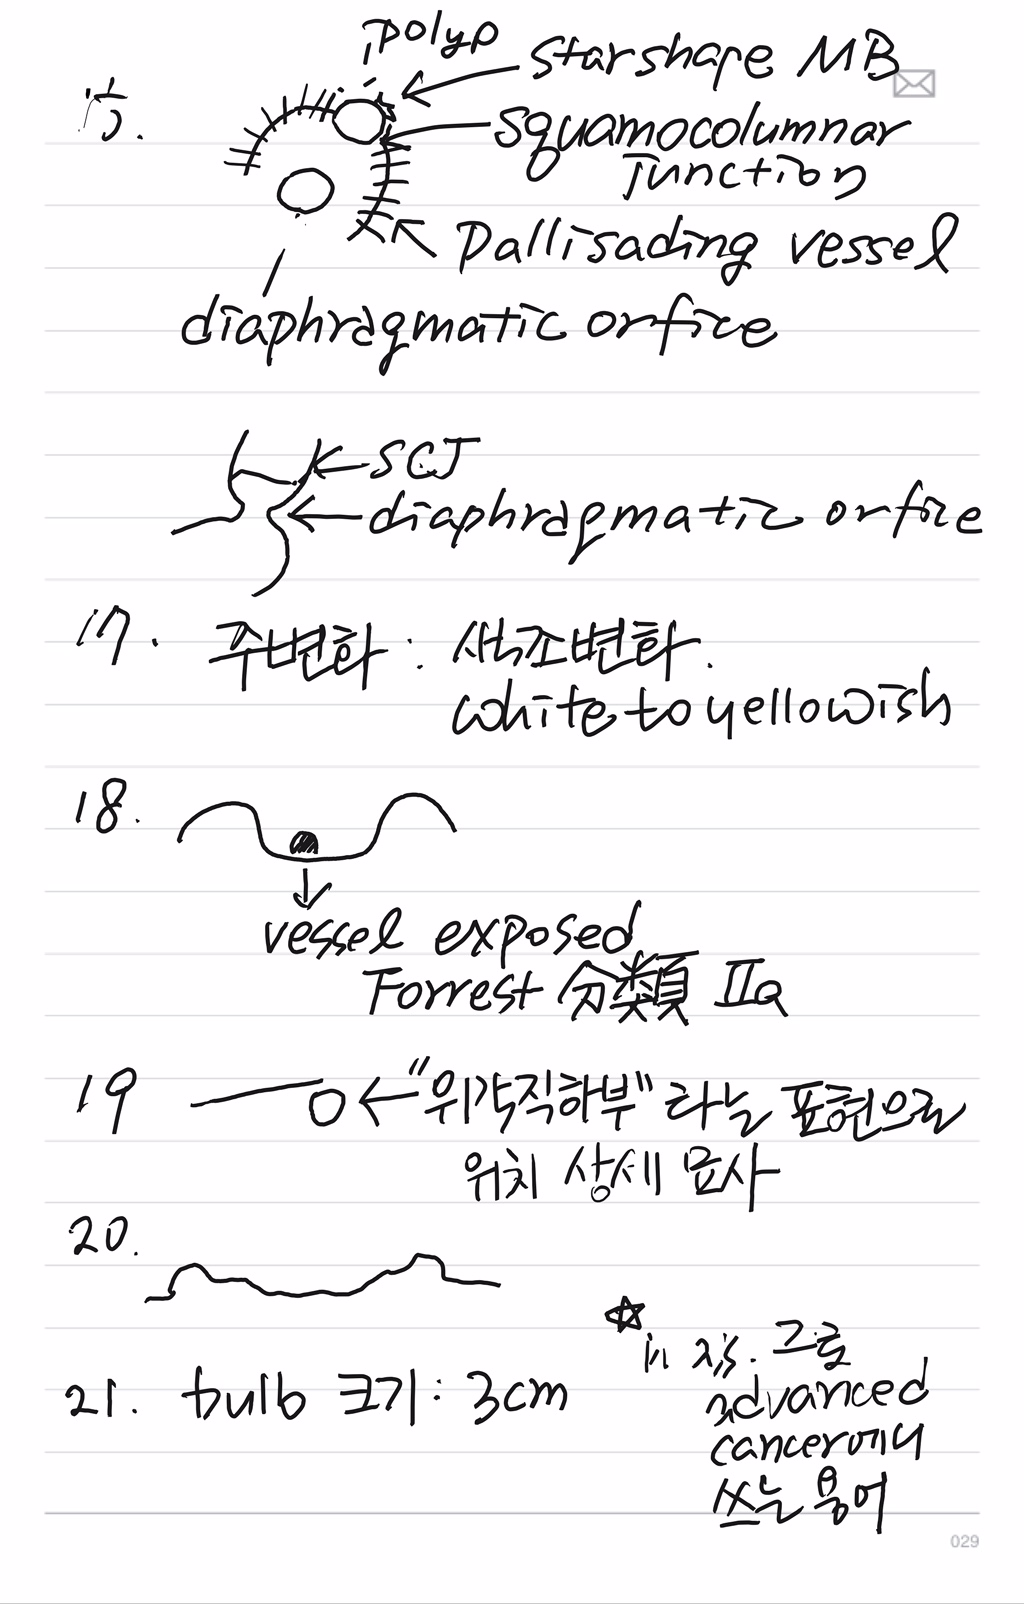 15.
polyp
star shape MB
squamocolumnar
junction
pallisading vessel
diaphragmatic orfice
SCJ
diaphragmatic orfice
17. 주변화 : 색조변화.
white to yellowish
18.
vessel exposed
Forrest 分類 IIa
19 "위각직하부" 라는 표현으로
위치 상세 묘사
20.
21. bulb 크기 : 3cm
☆
그로
advanced
cancer에서
쓰는 용어
029